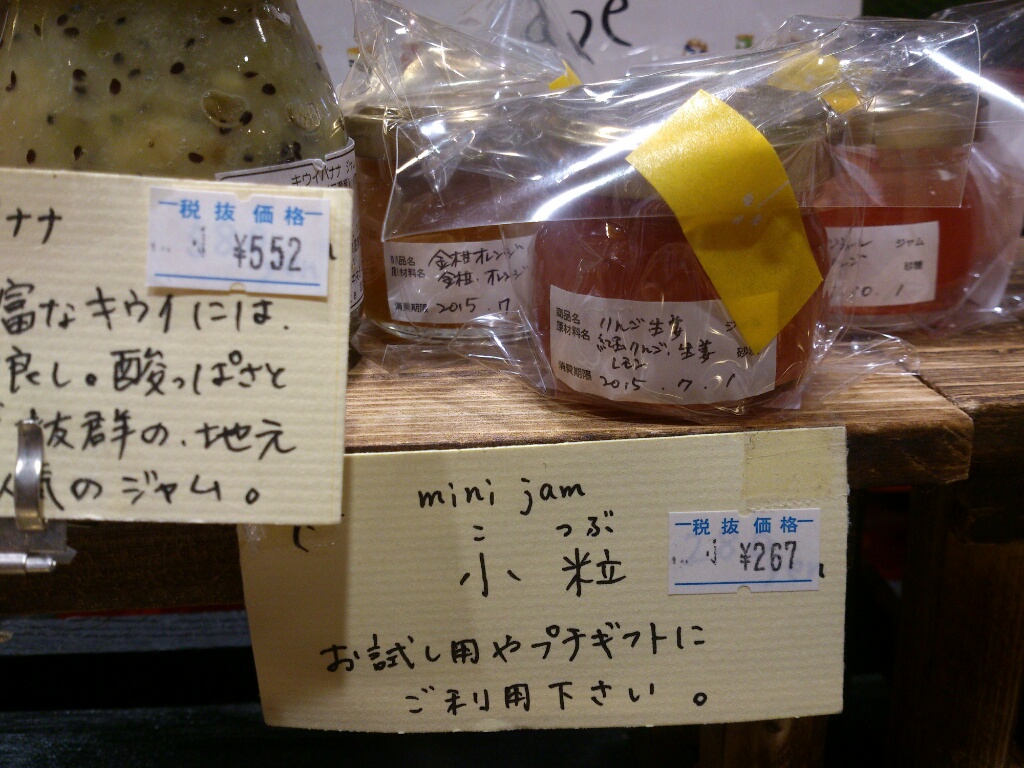 キウイバナナ
ナナ
税抜価格
¥552
富なキウイには、
良し。酸っぱさと
抜群の、地元
人気のジャム。
金柑オレンジ
原材料名 金柑、オレンジ
消費期限 2015.7
商品名 りんご生姜
原材料名 紅玉りんご、生姜 砂糖
レモン
消費期限 2015.7.1
ジャム
砂糖
mini jam
こ つぶ
小粒
税抜価格
¥267
お試し用やプチギフトに
ご利用下さい。